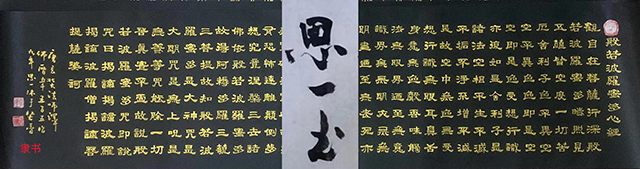 般若波羅蜜多心經
觀自在菩薩行深般
若波羅蜜多時照見
五蘊皆空度一切苦
厄舍利子色不異空
空不異色色即是空
空即是色受想行識
亦復如是舍利子是
諸法空相不生不滅
不垢不淨不增不減
是故空中無色無受
想行識無眼耳鼻舌
身意無色聲香味觸
法無眼界乃至無意
識界無無明亦無無
明盡乃至無老死亦
思一书
有恐怖遠離顛倒夢
想究竟涅槃三世諸
佛依般若波羅蜜多
故得阿耨多羅三藐
三菩提故知般若波
羅蜜多是大神咒是
大明咒是無上咒是
無等等咒能除一切
苦真實不虛故說般
若波羅蜜多咒即說
咒曰揭諦揭諦波羅
揭諦波羅僧揭諦菩
提薩婆訶
隶书